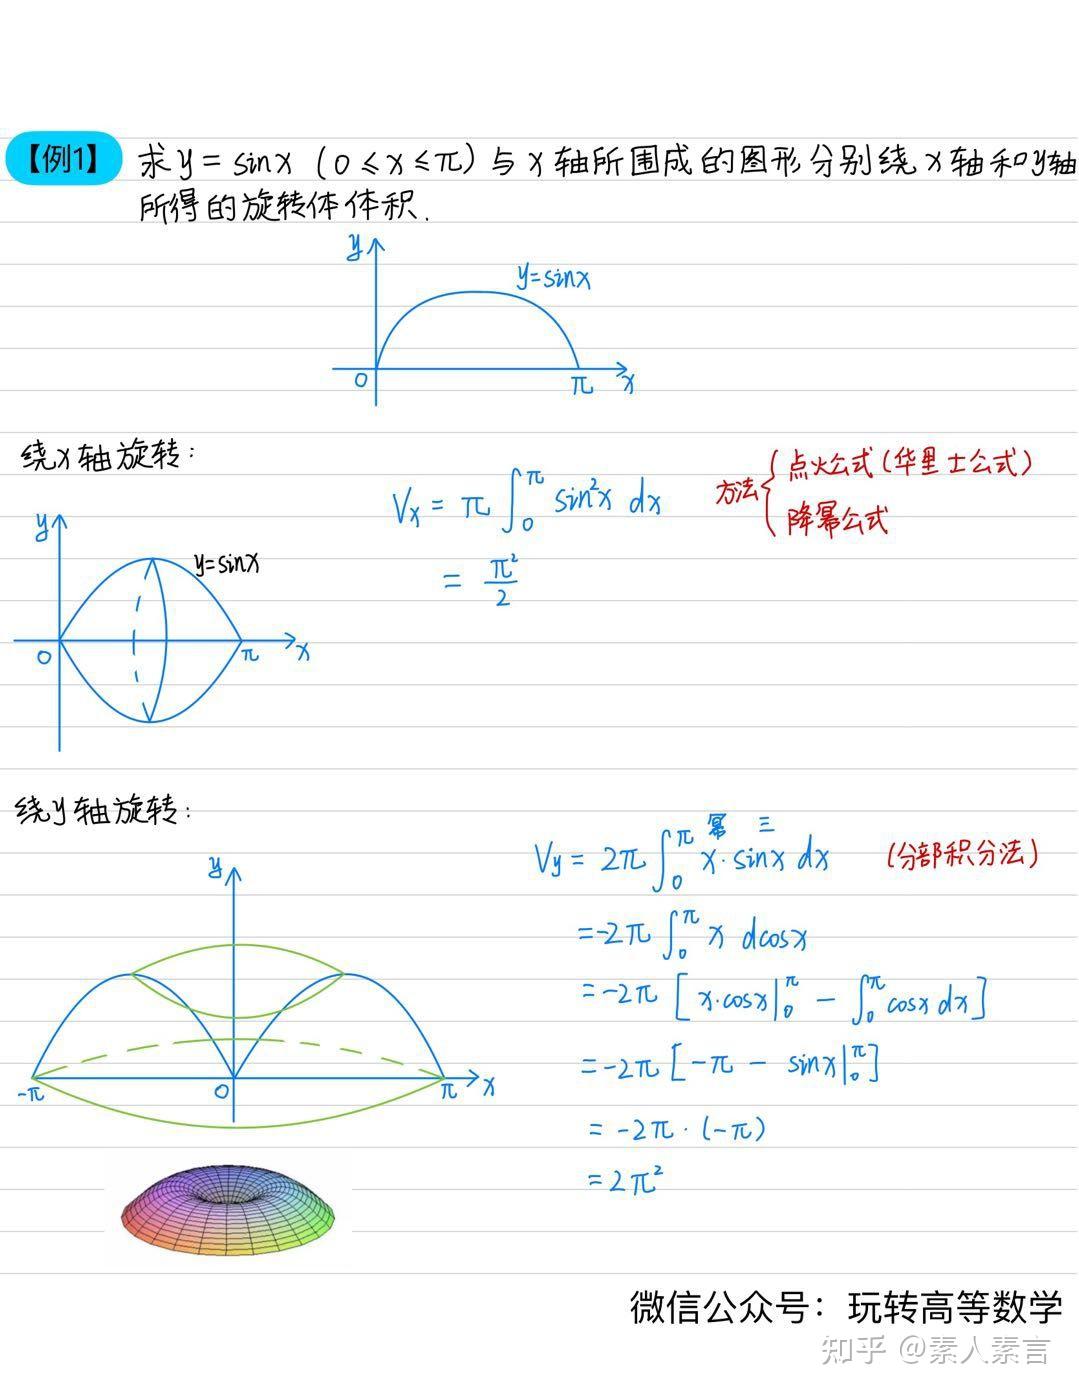 【例1】 求y = sinx (0 ≤ x ≤ π) 与 x 轴所围成的图形分别绕 x 轴和y轴
所得的旋转体体积.
y
y=sinx
0 π x
绕x轴旋转:
Vx = π ∫₀^π sin²x dx
= π²/2
方法 { 点火公式 (华里士公式)
降幂公式
y
y=sinx
0 π x
绕y轴旋转:
幂 三
Vy = 2π ∫₀^π x·sinx dx (分部积分法)
=-2π ∫₀^π x dcosx
=-2π [ x·cosx|₀^π - ∫₀^π cosx dx ]
=-2π [ -π - sinx|₀^π ]
= -2π·(-π)
= 2π²
y
-π 0 π x
微信公众号：玩转高等数学
知乎 @素人素言